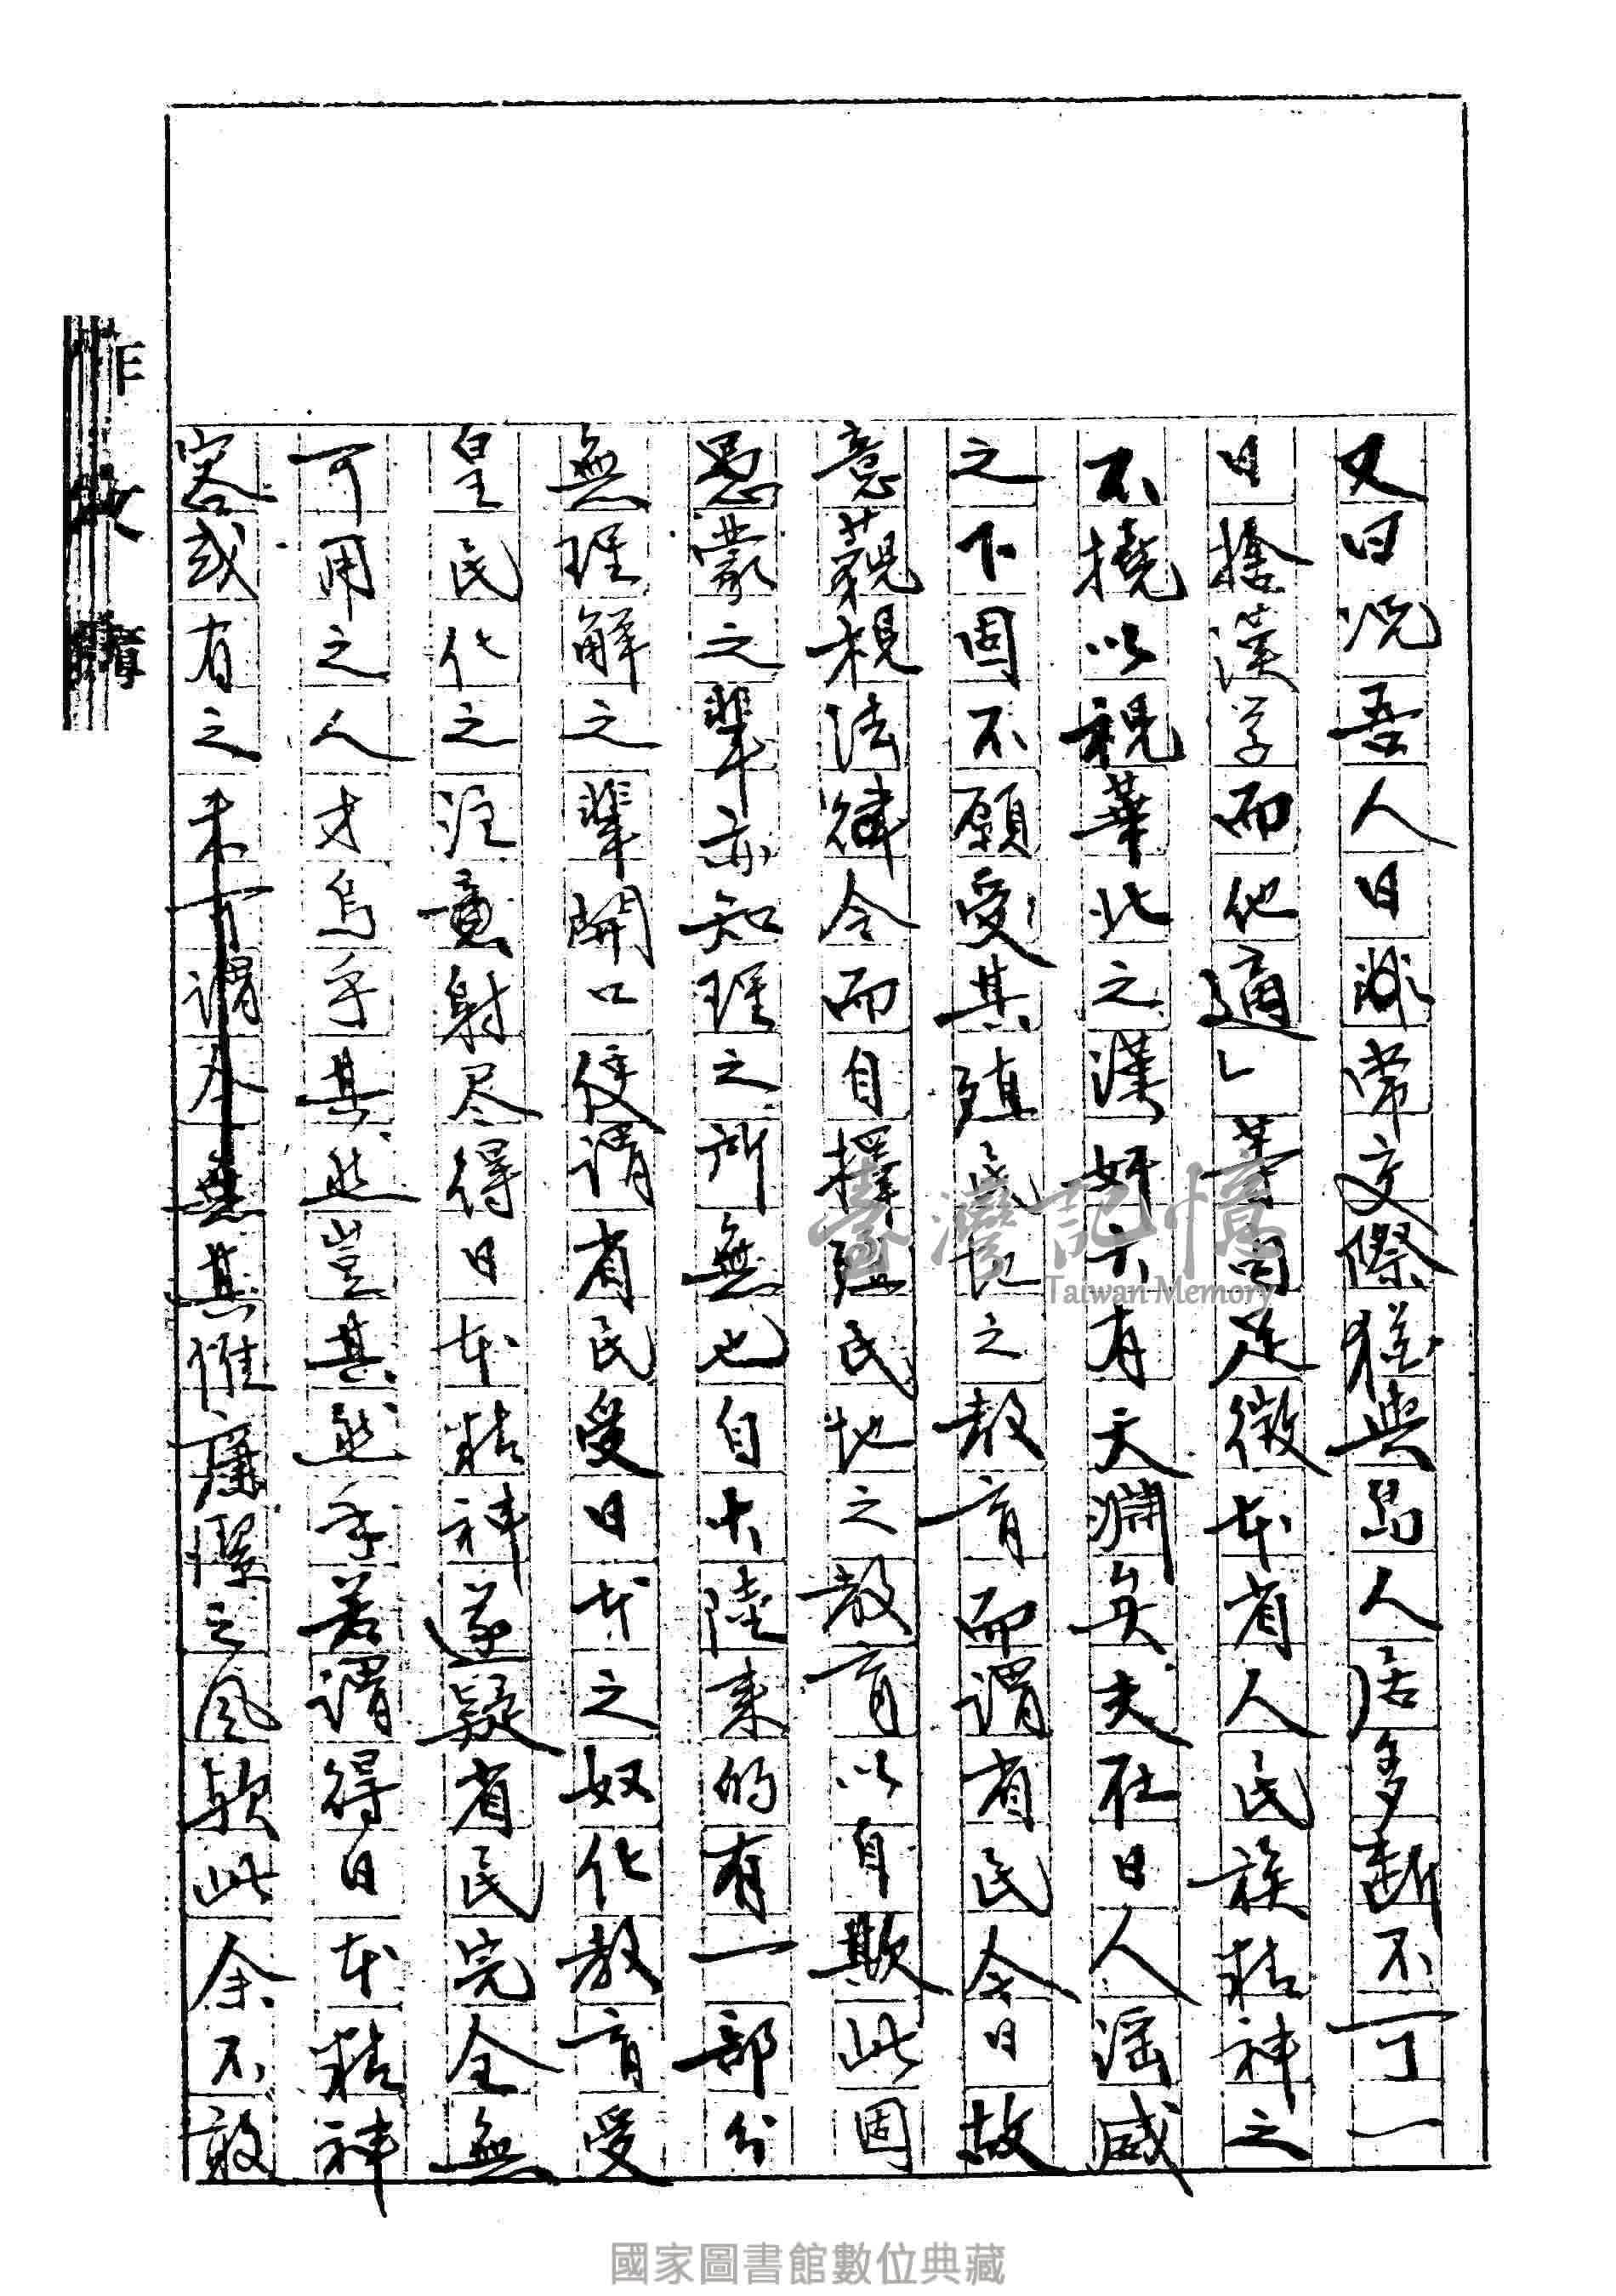 又曰況吾人日渉常交際猶與島人居多断不可一
日捨漢学而他適」等句足徵本省人民族精神之
不撓以視華北之漢奸云有天淵矣夫在日人淫威
之下固不願受其殖民地之教育而謂省民今日故
意藐視法律令而自擇殖民地之教育以自欺此固
愚蒙之輩亦知理之所無也自大陸来的有一部分
無理解之輩開口便謂省民受日本之奴化教育受
皇民化之注意射尽得日本精神遂疑省民完全無
可用之人才烏乎其然豈其然乎若謂得日本精神
容或有之未可謂全無其惟廉潔之風歟此余不敢
作文
國家圖書館數位典藏
臺灣記憶
Taiwan Memory